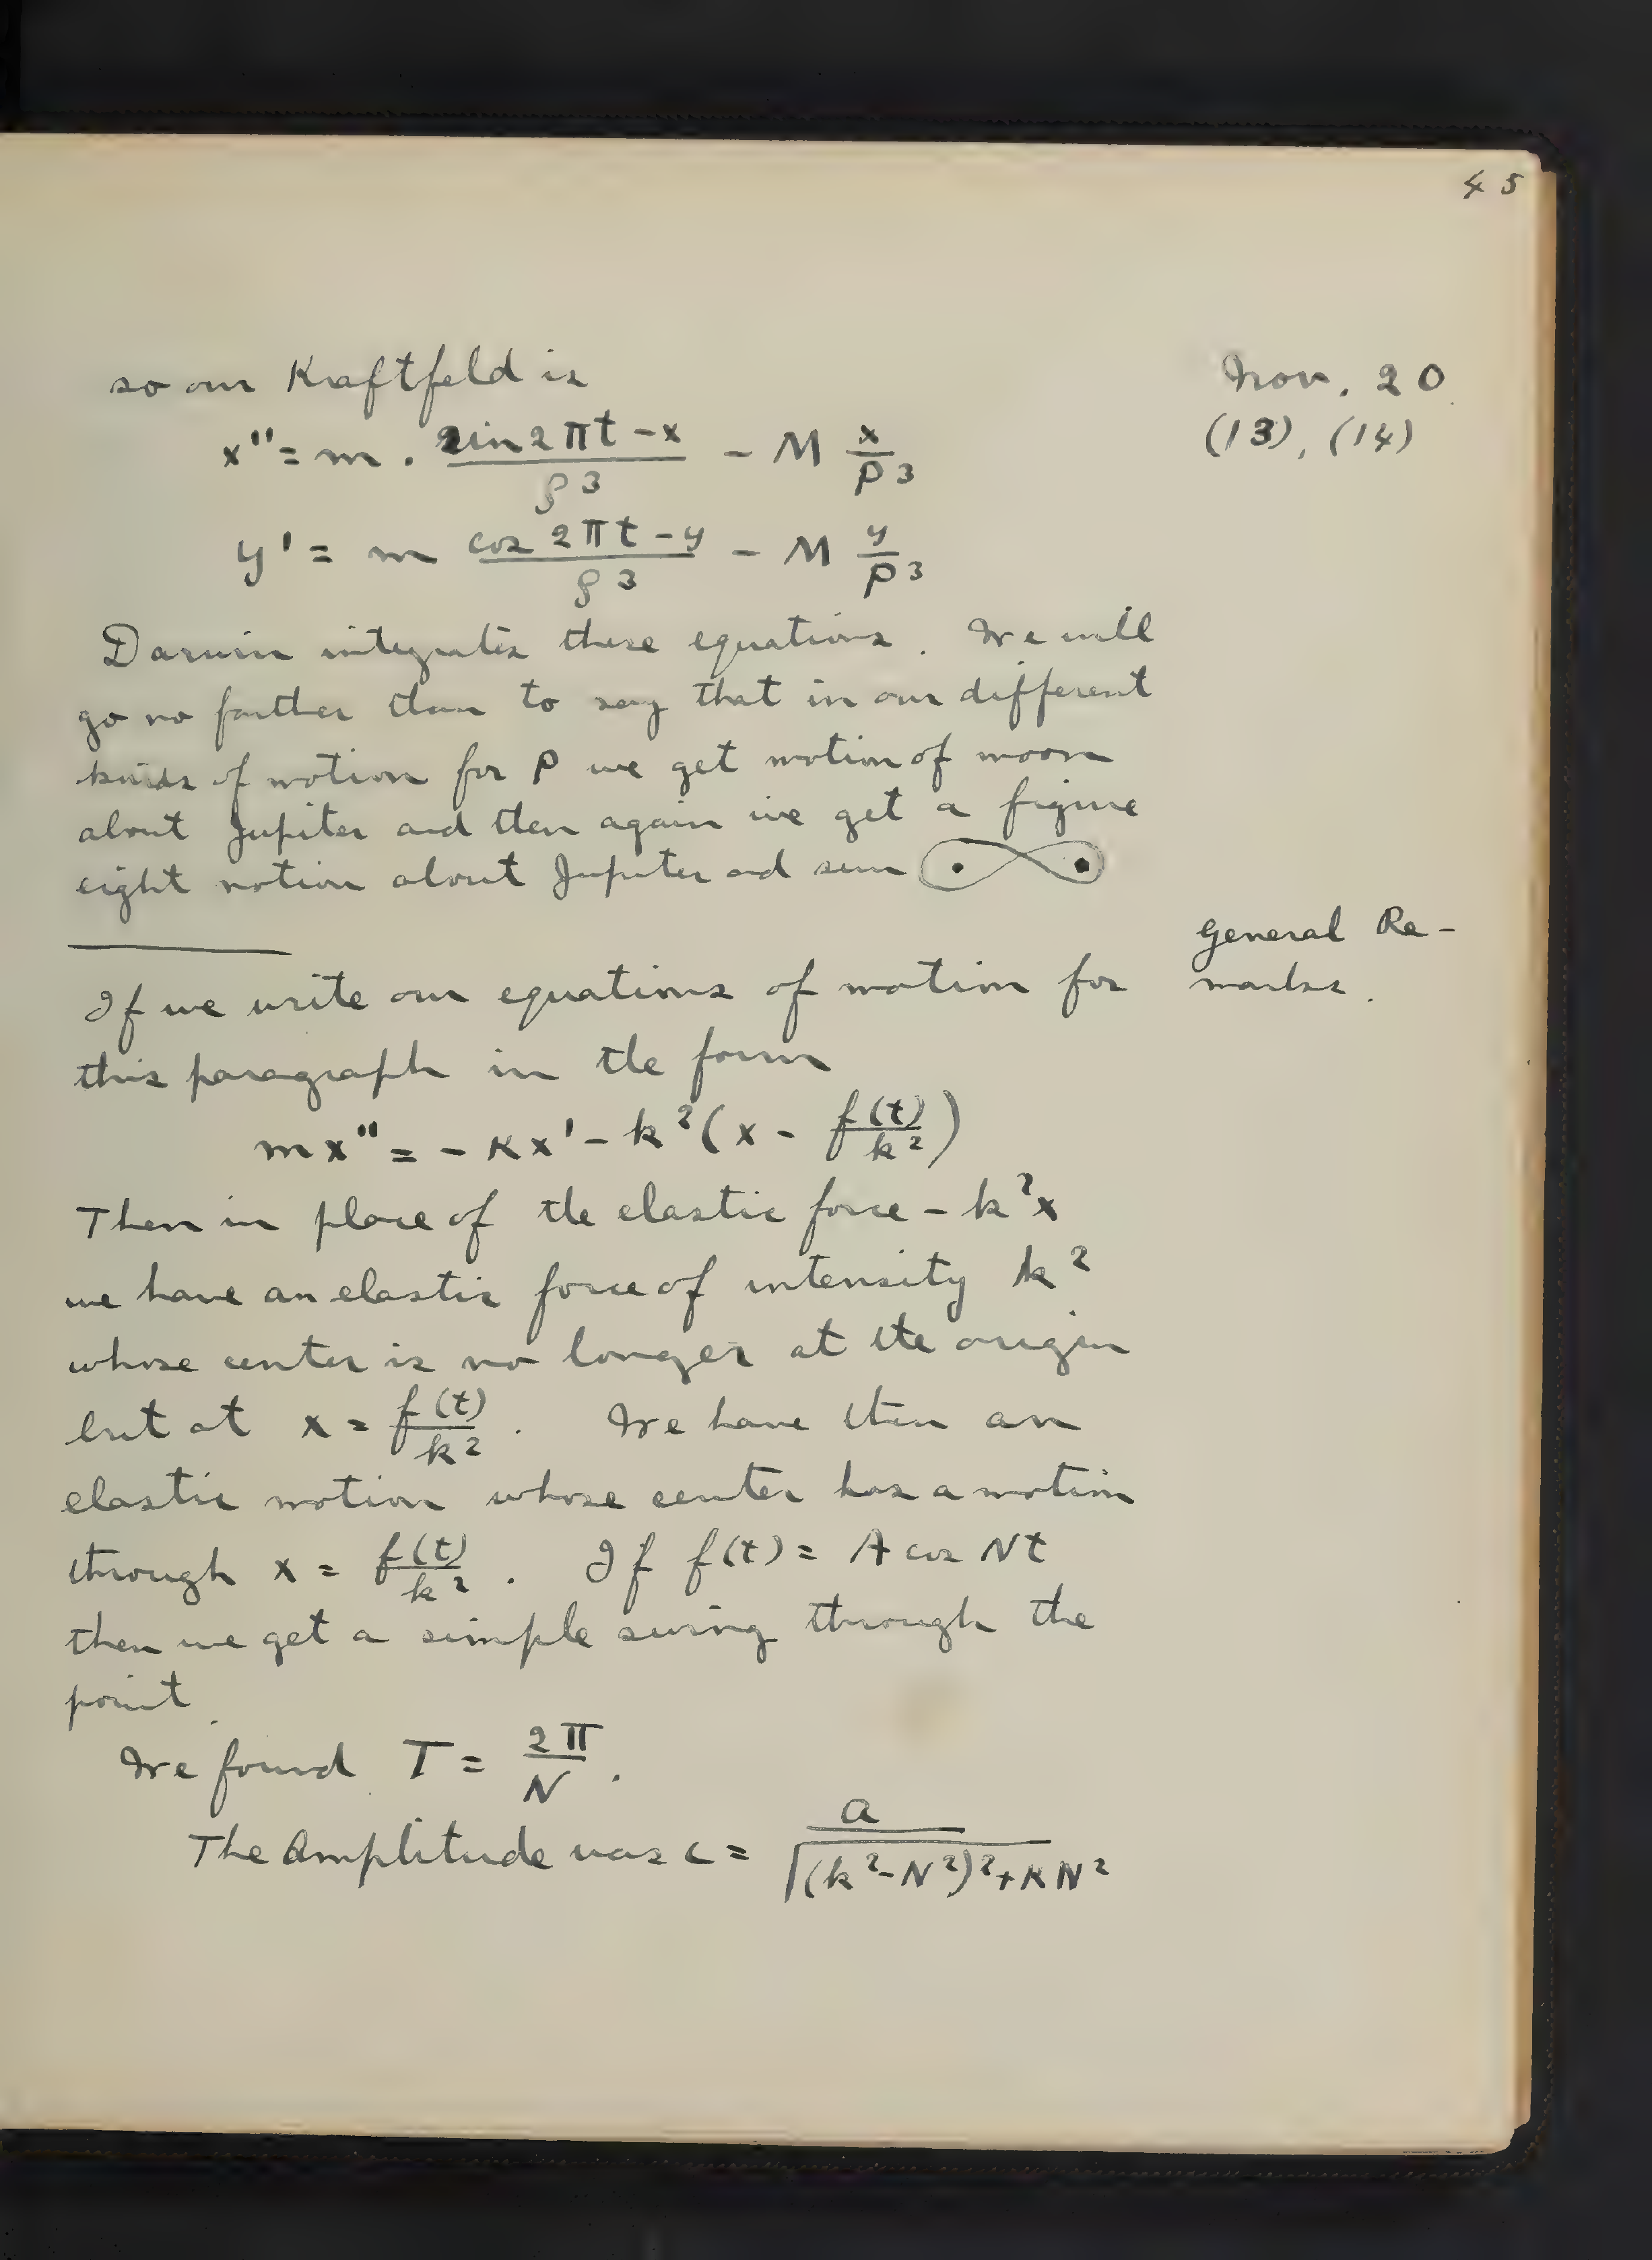 45
so our Kraftfeld is
Nov. 20
x'' = m . (sin 2πt - x)/ρ³ - M x/P³
(13), (14)
y' = m (cos 2πt - y)/ρ³ - M y/P³
Darwin integrates these equations. We will
go no farther than to say that in our different
kinds of motion for P we get motion of moon
about Jupiter and then again we get a figure
eight motion about Jupiter and sun
General Re-
marks.
If we write our equations of motion for
this paragraph in the form
mx'' = - κx' - k²(x - f(t)/k²)
Then in place of the elastic force - k²x
we have an elastic force of intensity k²
whose center is no longer at the origin
but at x = f(t)/k². We have then an
elastic motion whose center has a motion
through x = f(t)/k². If f(t) = A cos Nt
then we get a simple swing through the
point.
We found T = 2π/N.
The Amplitude was c = a/√((k²-N²)²+κN²)